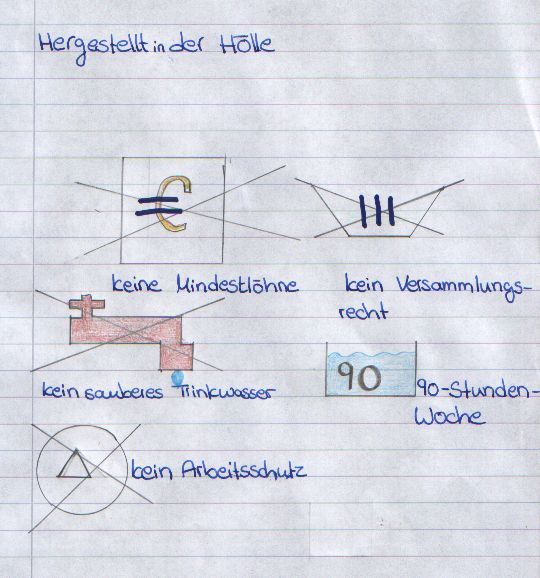 Hergestellt in der Hölle
€
III
keine Mindestlöhne
kein Versammlungs-
recht
kein sauberes Trinkwasser
90
90-Stunden-
Woche
kein Arbeitsschutz